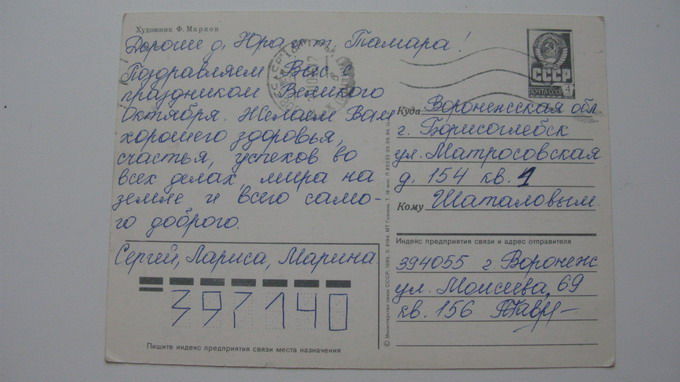 Художник Ф. Марков
Дорогие д. Юра и т. Тамара!
Поздравляем Вас с
праздником Великого
Октября. Желаем Вам
хорошего здоровья,
счастья, успехов во
всех делах, мира на
земле и всего само-
го доброго.
Сергей, Лариса, Марина
397140
Пишите индекс предприятия связи места назначения
СССР
4
Куда Воронежская обл
г. Борисоглебск
ул. Матросовская
д. 154 кв. 1
Кому Шаталовым
Индекс предприятия связи и адрес отправителя
394055 г Воронеж
ул. Моисеева, 69
кв. 156
© Министерство связи СССР